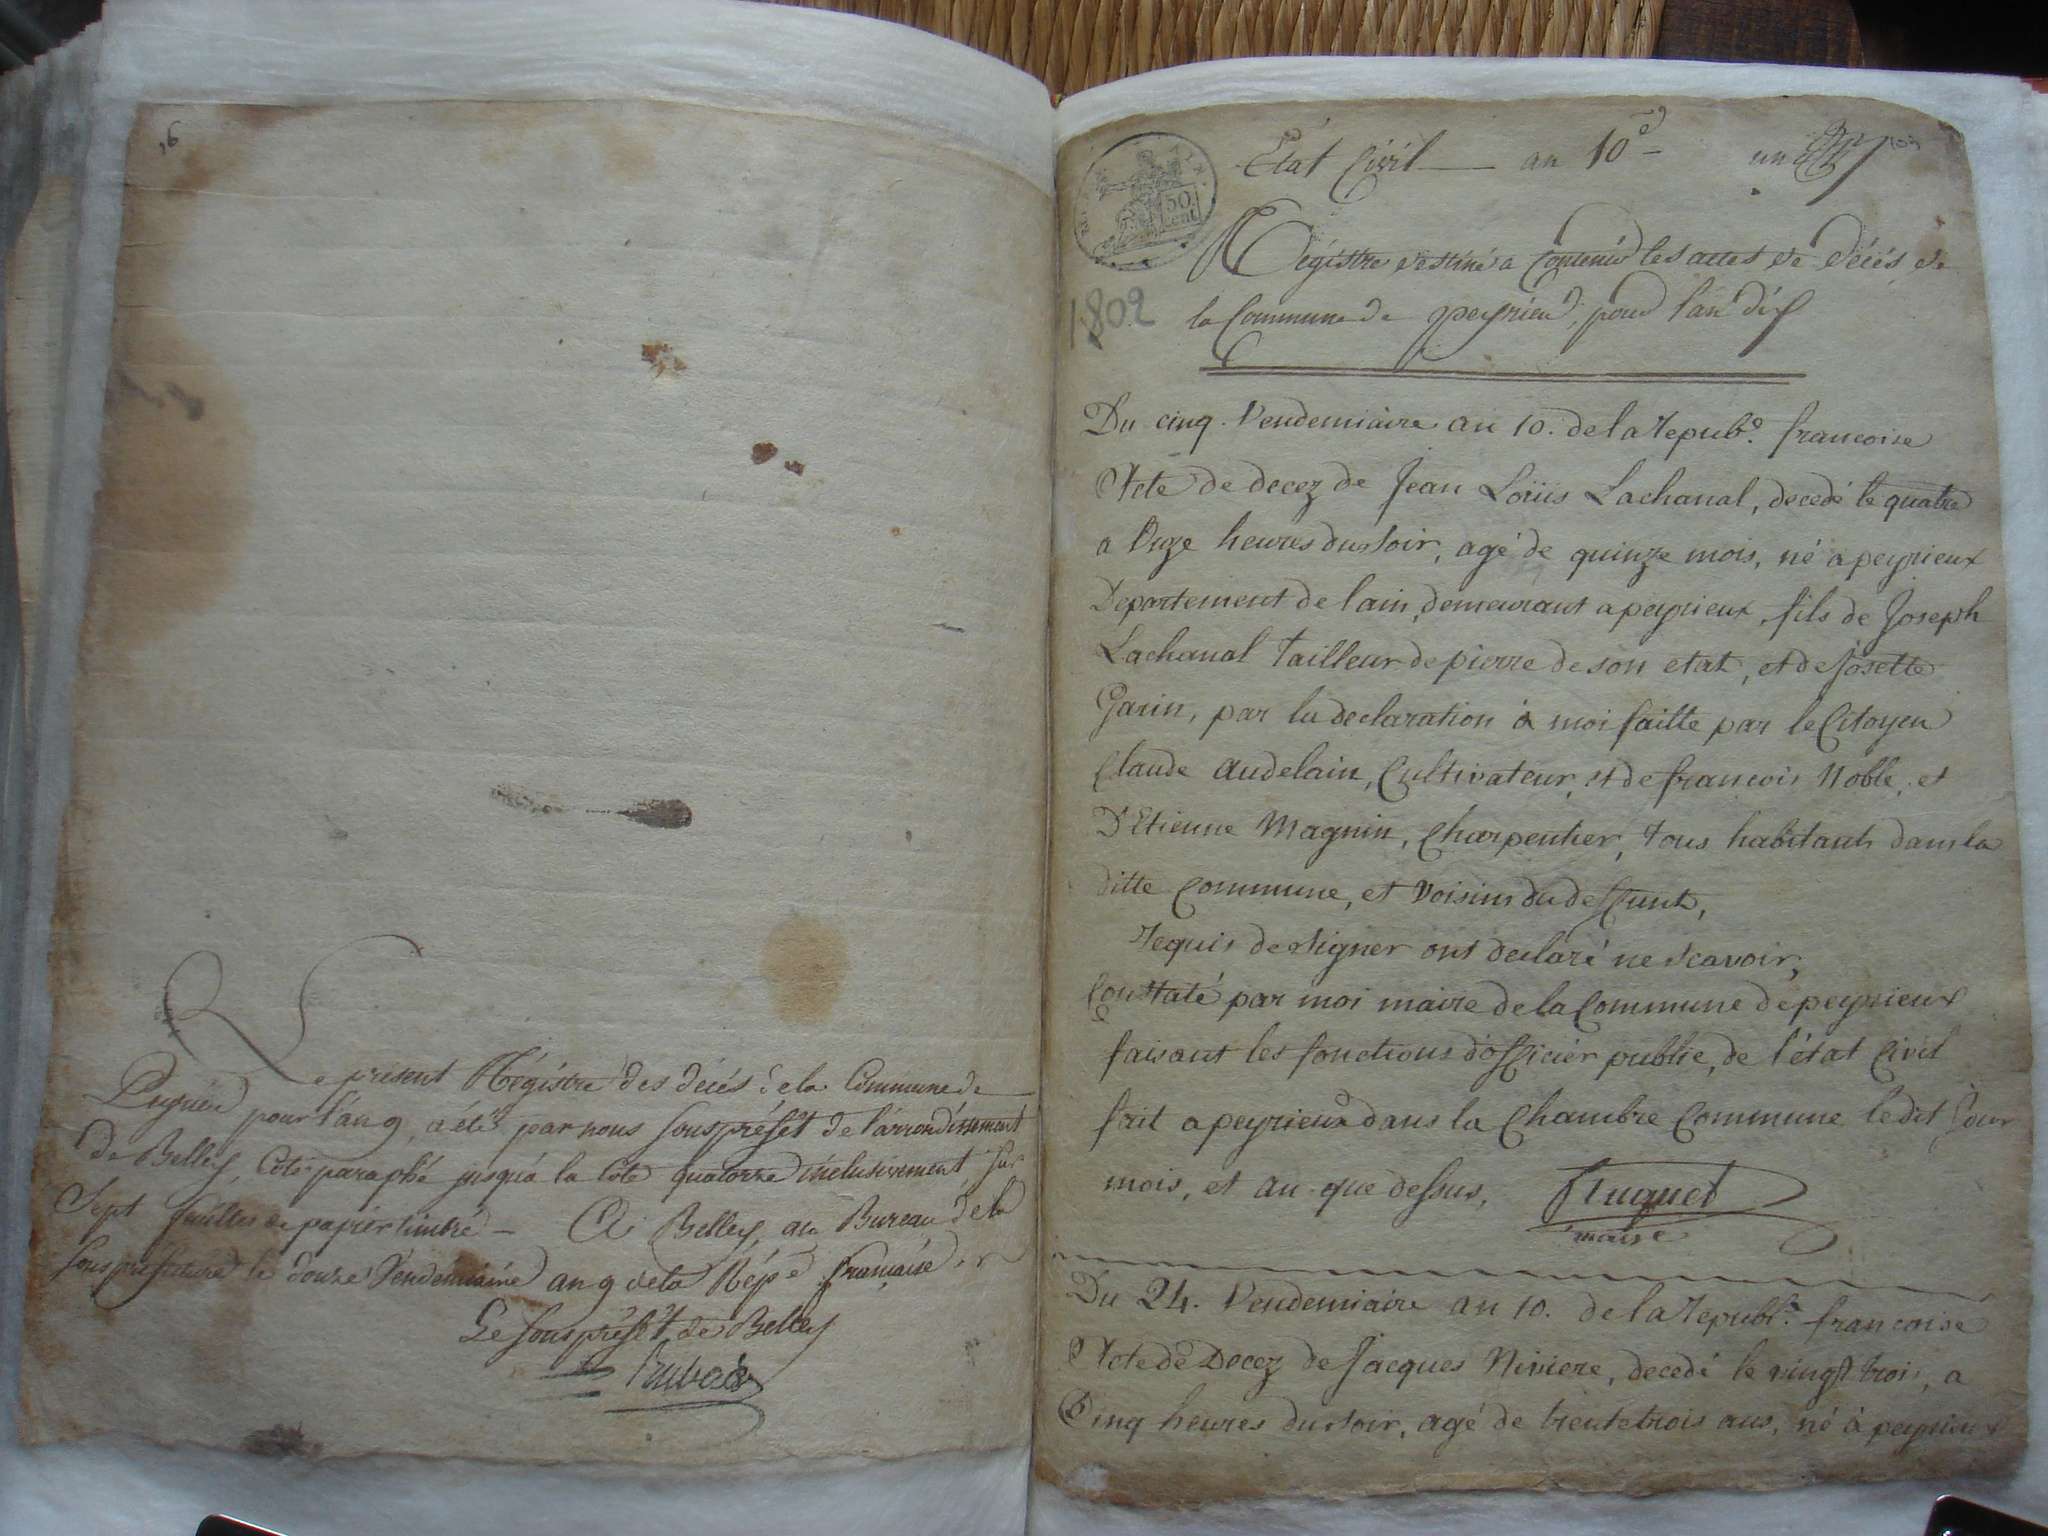 16
Le présent Régistre des décés de la Commune de
Peyrieu pour l'an 9, a été par nous Sous préfet de l'arrondissement
de Belley, Coté paraphé jusqu'à la Cote quatorze inclusivement, sur
Sept feuilles de papier timbré — A Belley, au Bureau de la
Sous préfecture le douze Vendemiaire an 9 de la Rép.e française
Le Sous préfet de Belley
État Civil — an 10e — un
50
cent
Régistre destiné a Contenir les actes de décés de
la Commune de peyrieu, pour l'an dix
1802
Du cinq. Vendemiaire an 10. de la repub.e francoise
Acte de decez de Jean Loüis Lachanal, decedé le quatre
a Onze heures du soir, agé de quinze mois, né a peyrieux
Departement de lain, demeurant a peyrieux, fils de Joseph
Lachanal tailleur de pierre de son etat, et de Josette
Garin, par la declaration à moi faitte par le Citoyen
Claude audelain, Cultivateur, et de francois Noble, et
D'Etienne Magnin, Charpentier, tous habitants dans la
ditte Commune, et Voisins du deffunt,
requis de signer ont declaré ne scavoir,
Constaté par moi maire de la Commune de peyrieux
faisant les fonctions d'officier public, de l'état Civil
fait a peyrieux dans la Chambre Commune ledit Jour
mois, et an que dessus,
maire
Du 24. Vendemiaire an 10. de la republ.e francoise
Acte de Decez de Jacques Niviere, decedé le vingt trois, a
Cinq heures du soir, agé de trente trois ans, né à peyrieux